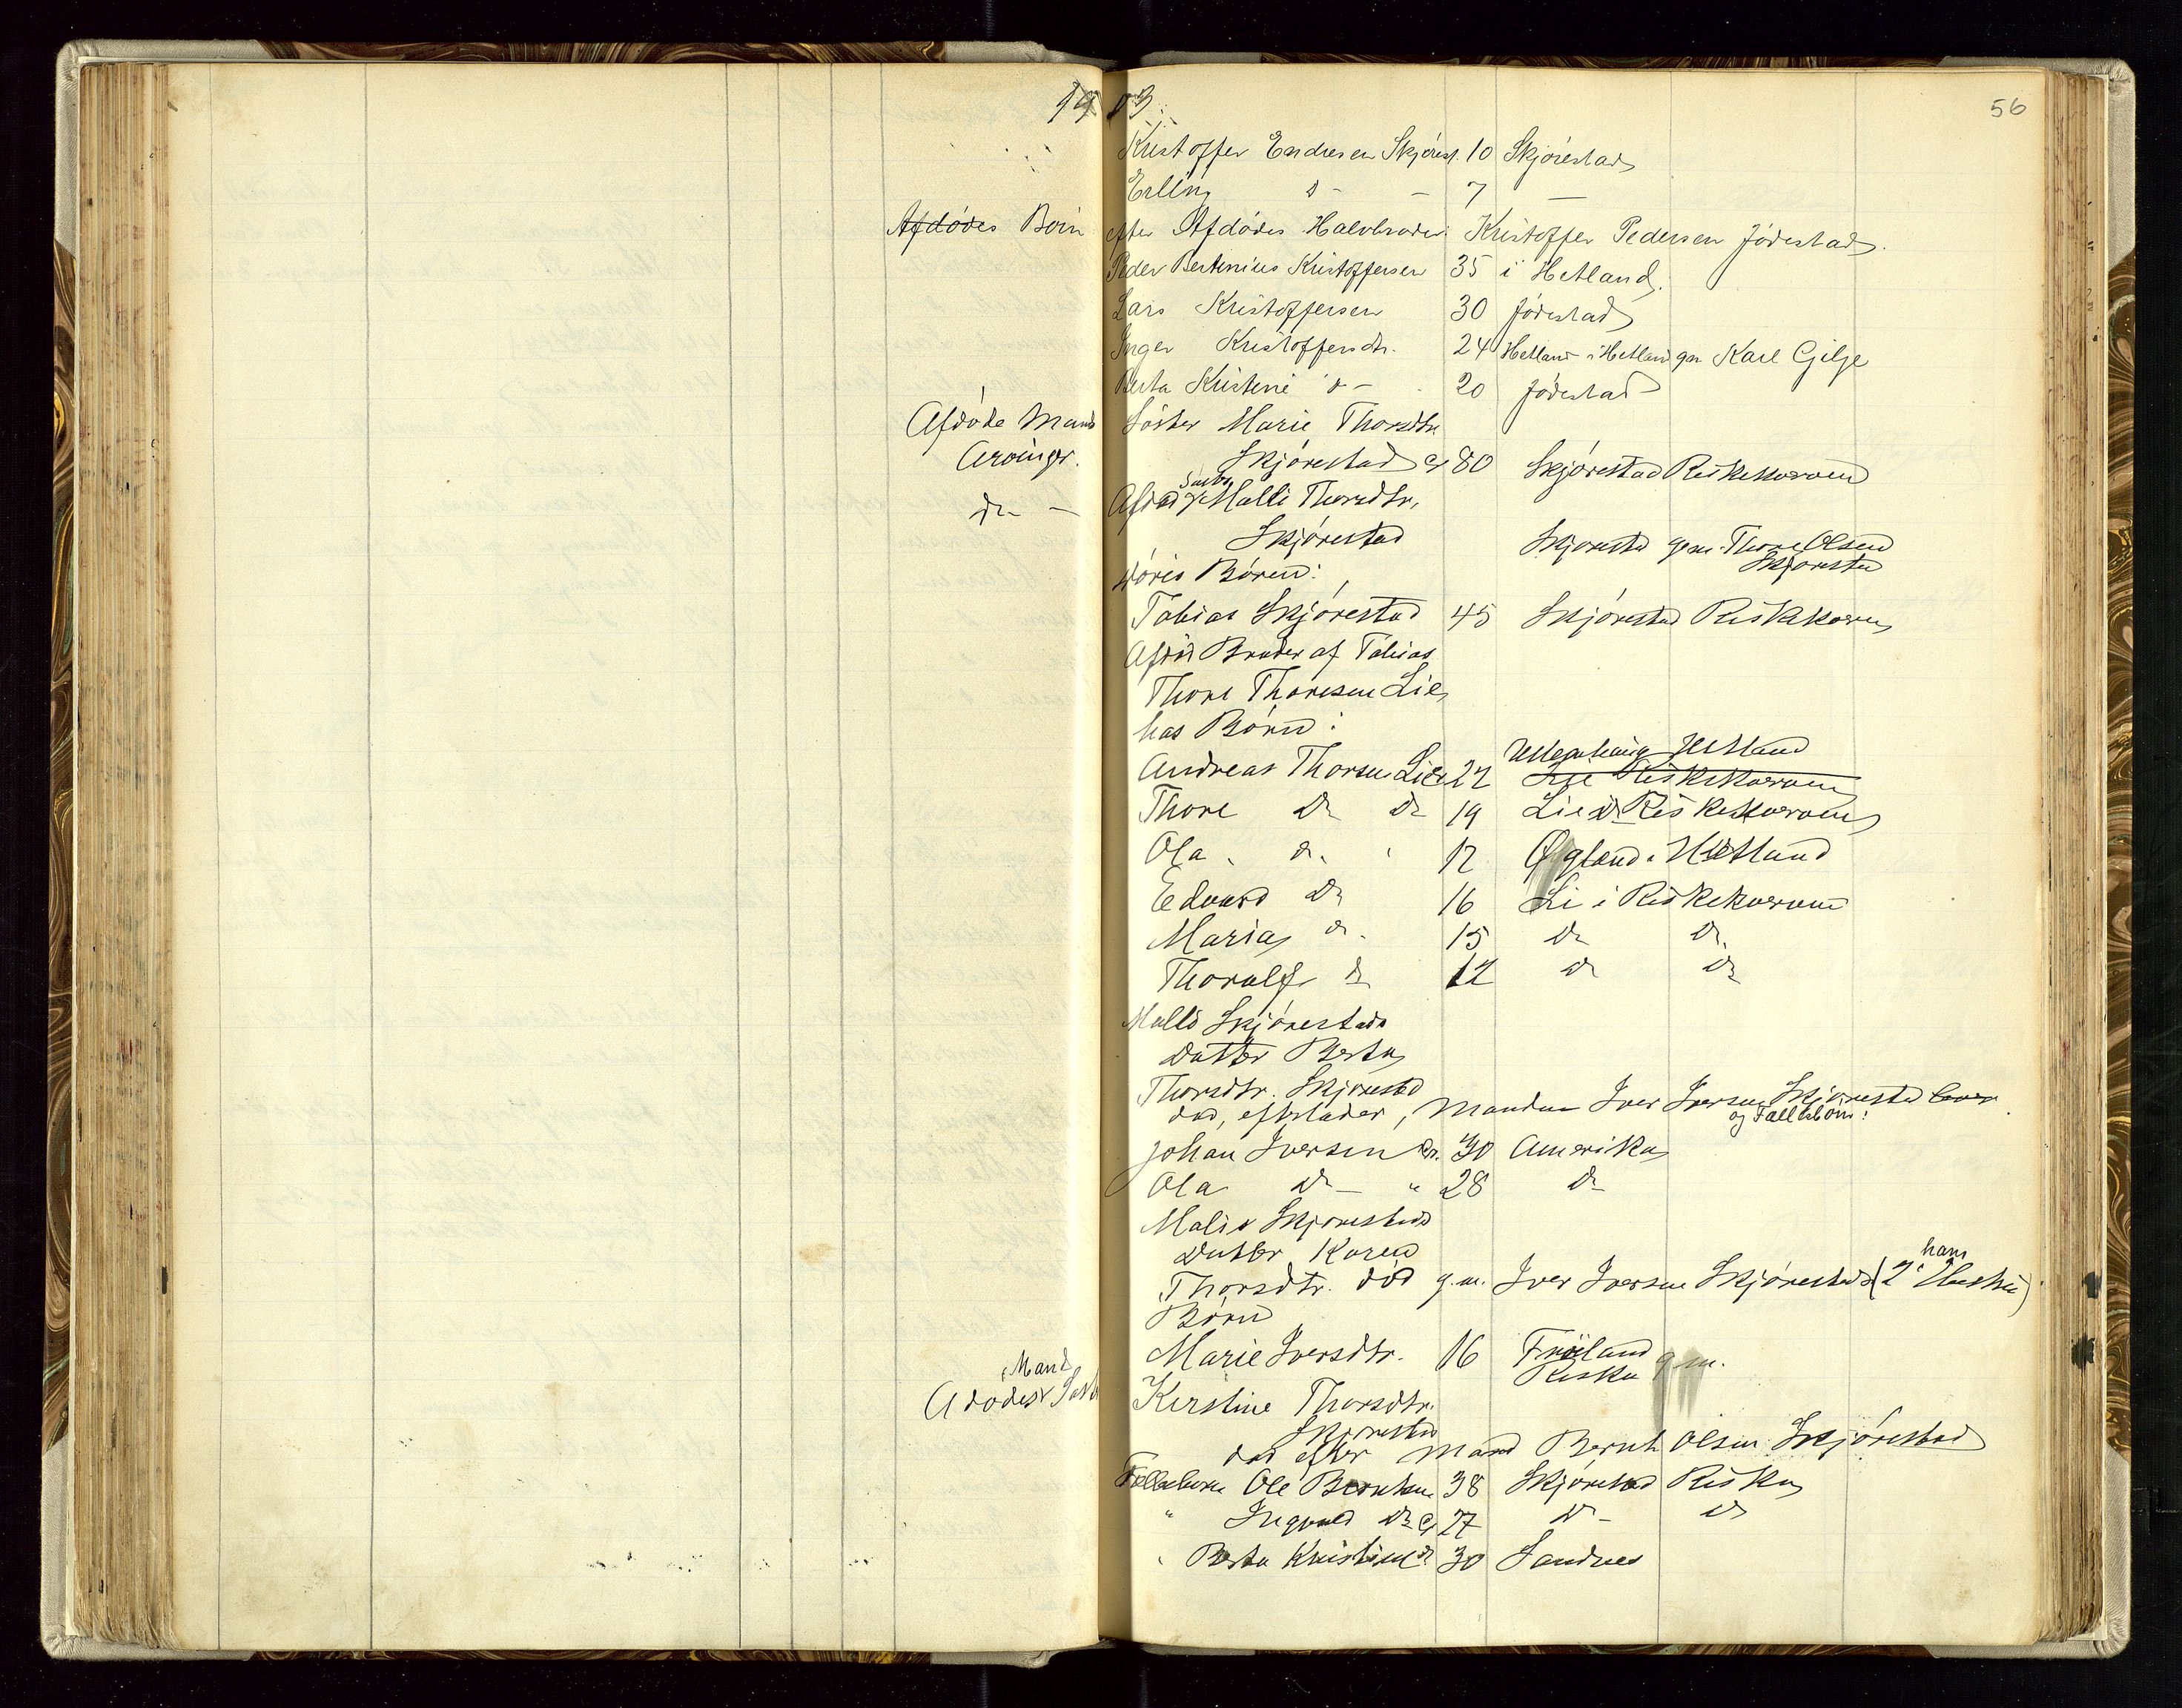 1903.
56
Kristoffer Endresen Skjørest. 10 Skjørestad
Erling d- - 7 -
Afdødes Børn efter Afdødes Halvbroder: Kristoffer Pedersen Jødestad.
Peder Bertinius Kristoffersen 35 i Hetland.
Lars Kristoffersen 30 Jødestad
Inger Kristoffersdtr. 24 Hetland i Hetland gm Karl Gilje
Berta Kristine d- 20 Jødestad
Afdøde Mands Søster Marie Thorsdtr.
Arvinger. Skjørestad 80 Skjørestad Riskekværven
Søster
d- - Afdød Malli Thorsdtr.
Skjørestad Skjørestad gm. Thore Olsen
Skjørestad
Børen:
Tobias Skjørestad 45 Skjørestad
Afdød Broder af Tobias
Thore Thoresen Lie
has Børn:
Hetland
Andreas Thorsen Lie 22 Lie Riskekværven
Thore d d 19 Lie d Riskekværven
Ola d. 12 Øgland i Hetland
Edvard d 16 Li i Riskekværven
Maria d. 15 d d.
Thoralf d 12 d d
Malli Skjørestads
Datter Berta
Thorsdtr. Skjørestad
død, efterlader, Manden Iver Iversen Skjørestad lever
og Fællesbørn:
Johan Iversen 30 Amerika
Ola d- " 28 d-
Malis Skjørestads
Datter Karen
hans
Thorsdtr. død g.m. Iver Iversen Skjørestad (2
Børn
Marie Iversdtr. 16 Frøiland g m.
Riska
Mand
Kerstine Thorsdtr.
Skjørestad
død efter Mand Bernt Olsen Skjørestad
Fællesbørn Ole Berntsen 38 Skjørestad Riska
" Ingvald d 27 d- d
" Berta Kristine d 30 Sandnes